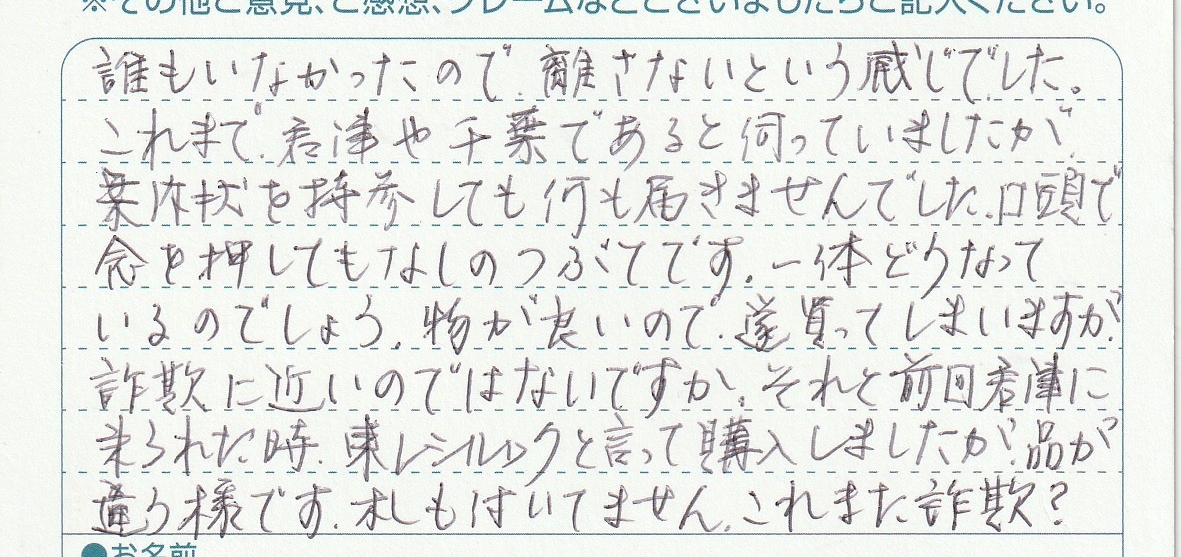 ※その他ご意見、ご感想、クレームなどございましたらご記入ください。
誰もいなかったので、離さないという感じでした。
これまで、君津や千葉であると伺っていましたが、
案内状を持参しても何も届きませんでした。口頭で
念を押してもなしのつぶてです。一体どうなって
いるのでしょう。物が良いので、遂買ってしまいますが、
詐欺に近いのではないですか。それと前回君津に
来られた時、東レシルックと言って購入しましたが、品が
違う様です。札もはいてません。これまた詐欺?
●お名前